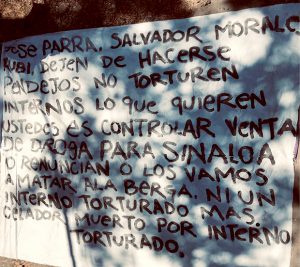 JOSE PARRA. SALVADOR MORALE
RUBI. DEJEN DE HACERSE
PENDEJOS NO TORTUREN
INTERNOS LO QUE QUIEREN
USTEDES ES CONTROLAR VENTA
DE DROGA PARA SINALOA
O RENUNCIAN O LOS VAMOS
A MATAR ALA BERGA. NI UN
INTERNO TORTURADO MAS.
CELADOR MUERTO POR INTERNO
TORTURADO.